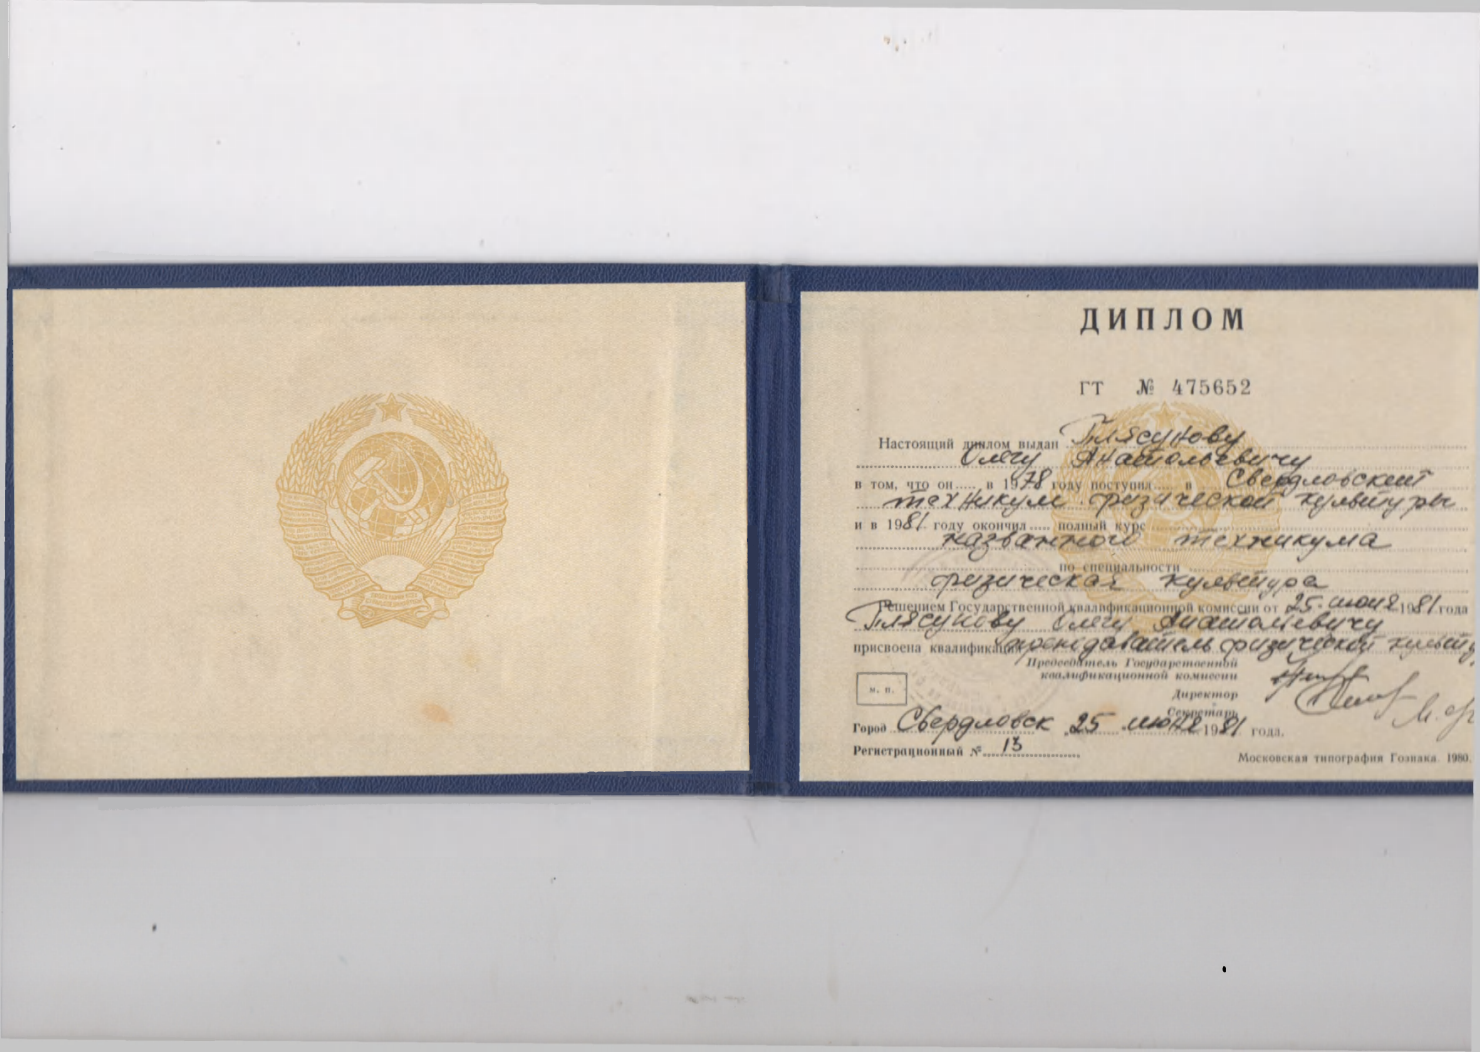 ДИПЛОМ
ГТ № 475652
Настоящий диплом выдан Плясунову
Олегу Анатольевичу
в том, что он в 1978 году поступил в Свердловский
техникум физической культуры
и в 1981 году окончил полный курс
названного техникума
по специальности
физическая культура
Решением Государственной квалификационной комиссии от 25 июня 1981 года
Плясунову Олегу Анатольевичу
присвоена квалификация преподаватель физической культу
Председатель Государственной
квалификационной комиссии
М. П.
Директор
Секретарь
Город Свердловск 25 июня 1981 года.
Регистрационный № 13
Московская типография Гознака. 1980.